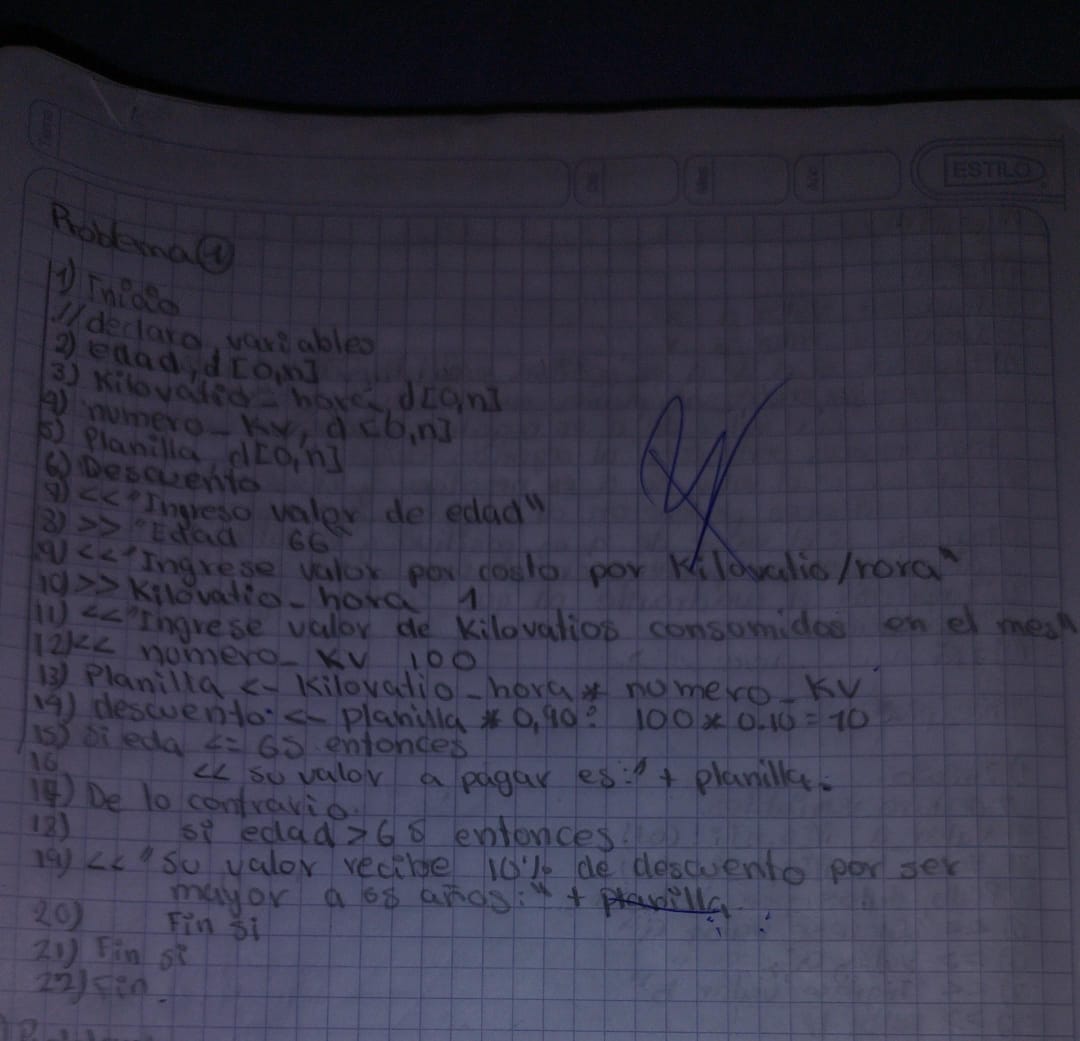 ESTILO
Problema 1
1) Inicio
// declaro variables
2) edad, d [0,n]
3) Kilovatio - hora, d[0,n]
4) numero - KV, d [0,n]
5) Planilla d[0,n]
6) Descuento
7) << "Ingreso valor de edad"
8) >> "Edad 66
9) << "Ingrese valor por costo por Kilovatio/rora"
10) >> Kilovatio - hora 1
11) << "Ingrese valor de Kilovatios consomidos en el mes"
12) << nomero - KV 100
13) Planilla <- Kilovatio - hora * nomero - KV
14) descuento <- planilla * 0,90: 100 * 0.10 = 10
15) si eda <= 65 entonces
16 << su valor a pagar es:" + planilla.
17) De lo contrario.
18) si edad > 65 entonces.
19) << "Su valor recibe 10% de descuento por ser
mayor a 65 años:" + planilla.
20) Fin si
21) Fin si
22) Fin.